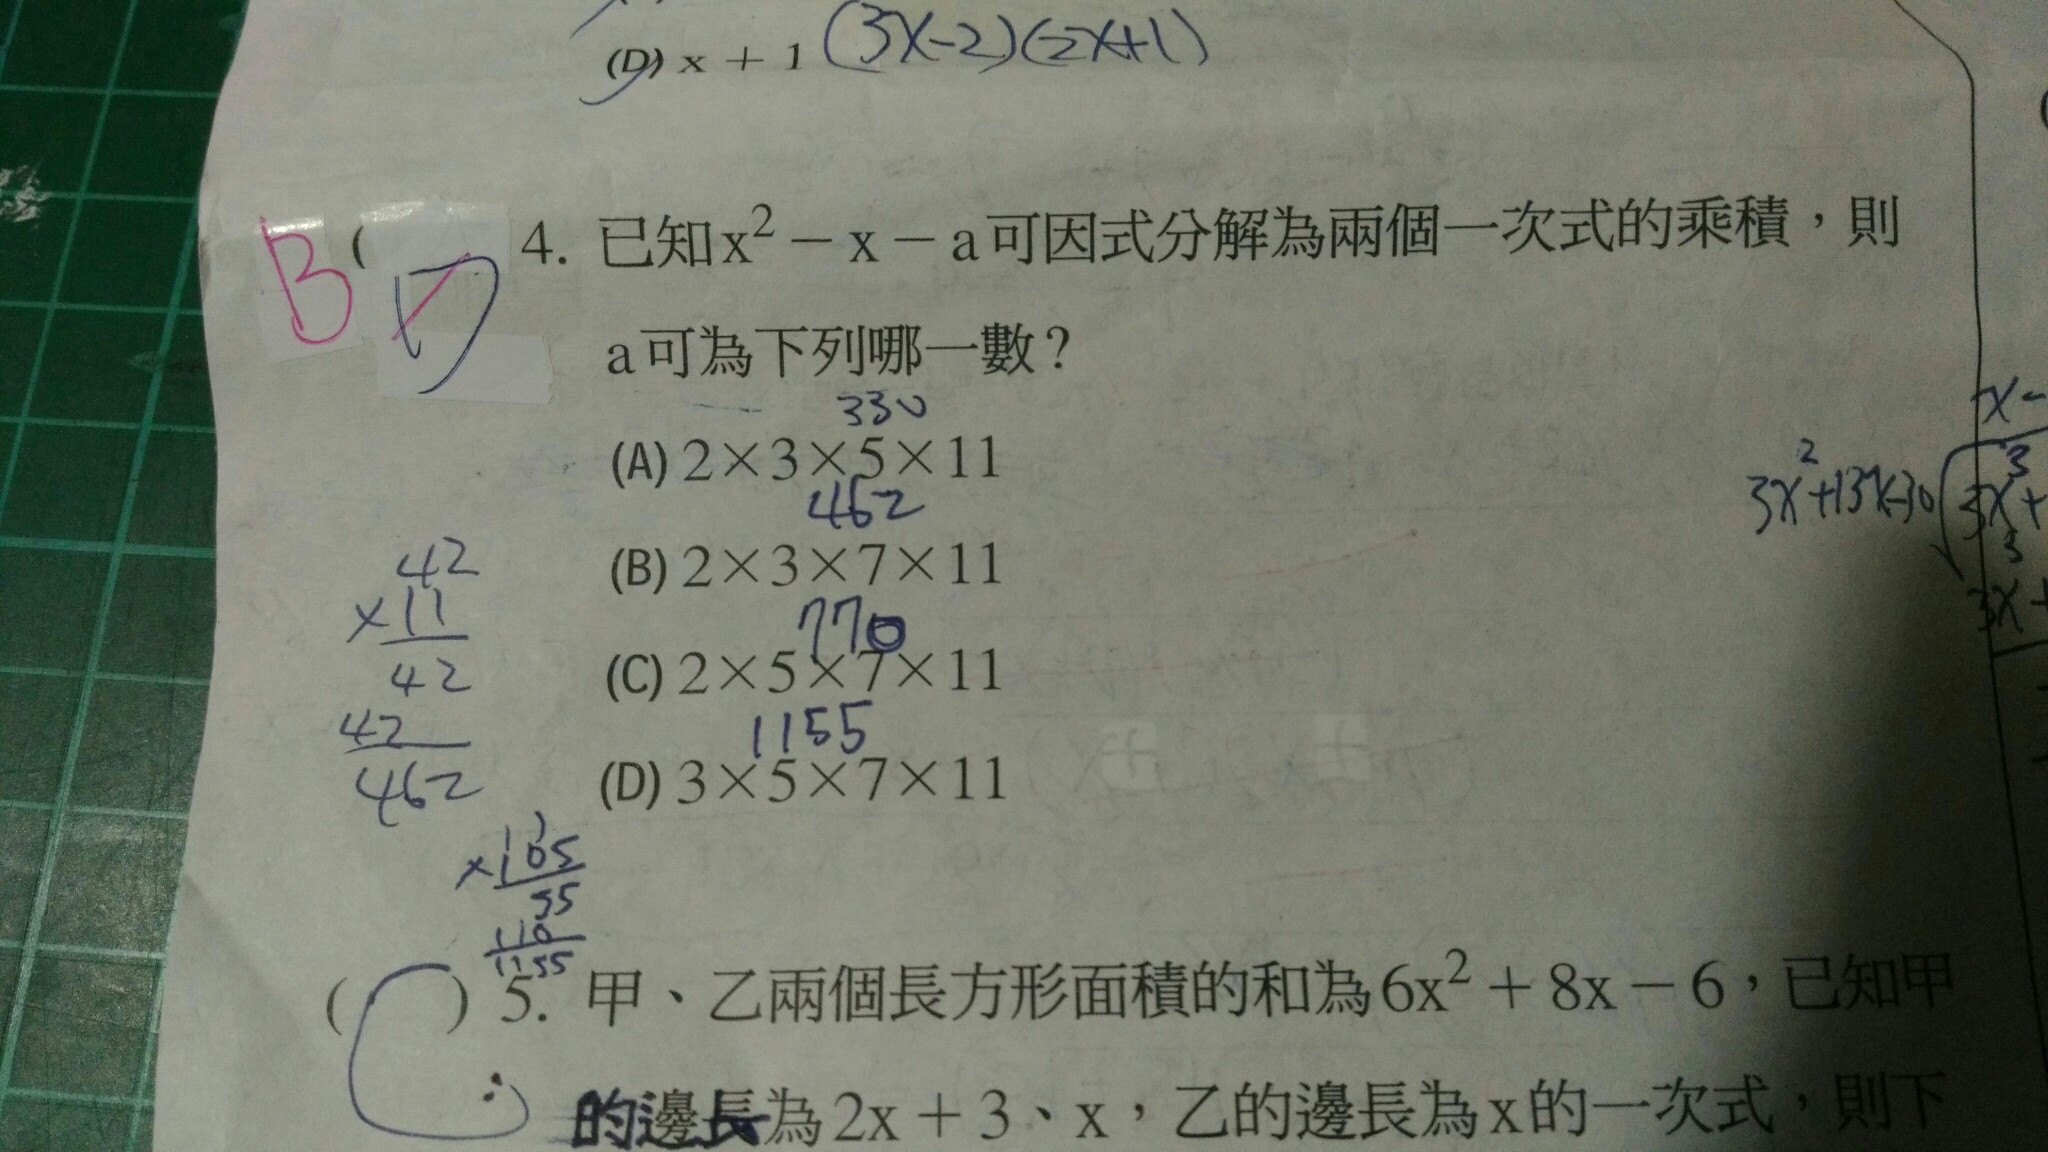 (D) x + 1 (3x-2)(2x+1)
B ( 4. 已知x² － x － a可因式分解為兩個一次式的乘積，則
a可為下列哪一數？
330
(A) 2×3×5×11
462
(B) 2×3×7×11
770
(C) 2×5×7×11
1155
(D) 3×5×7×11
42
×11
42
42
462
11
×105
55
110
1155
3x²+13x-30
( ) 5. 甲、乙兩個長方形面積的和為6x² + 8x － 6，已知甲
的邊長為2x + 3、x，乙的邊長為x的一次式，則下